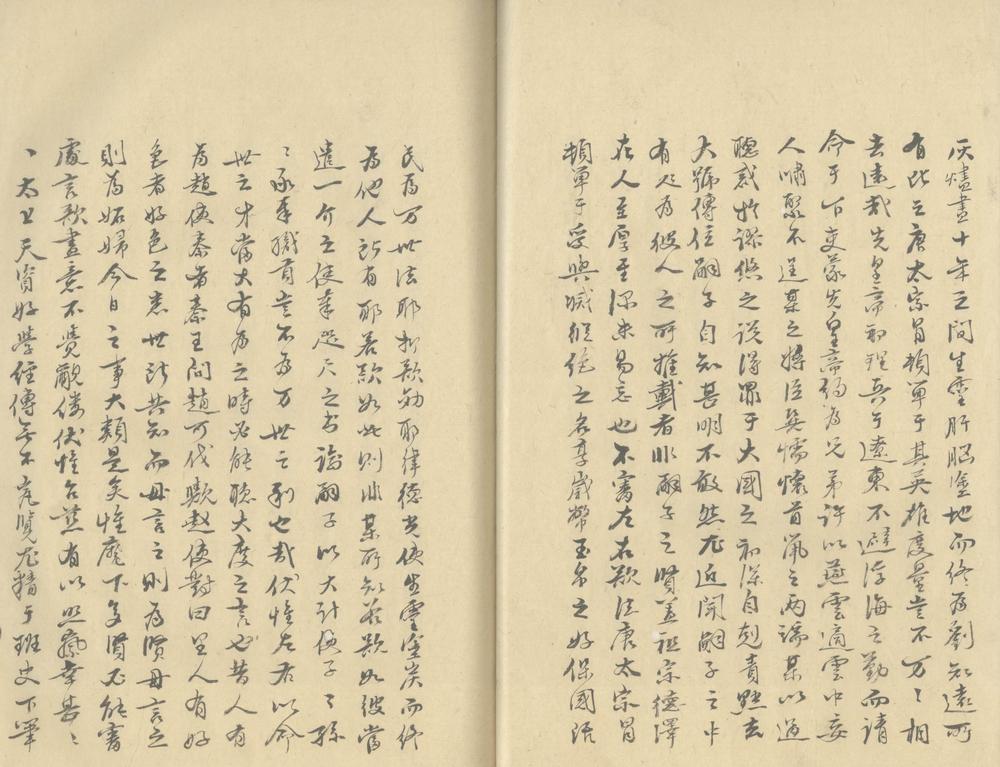 灰燼盡十年之間生靈肝腦塗地而終為劉知遠所
有比之唐太宗冒頓單于其英雄度量豈不万々相
去遠哉先皇帝初理兵于遼東不避浮海之勤而請
今于下吏蒙先皇帝約為兄弟許以燕雲適雲中妄
人嘯聚不逞某之將臣巽懦懷首鼠之兩端某以過
聽惑於謬悠之說得罪于大國之初深自剋責黜去
大號傳位嗣子自知甚明不敢然尤近聞嗣子之中
有為彼人之所推戴者非嗣子之賢蓋祖宗德澤
在人至厚至深未易忘也不審左右欲法唐太宗冒
頓單于受興滅繼絕之名享歲幣玉帛之好保國活
民為万世法耶抑欲効耶律德光使生靈塗炭而終
為他人所有耶若欲如此則非某所知若欲如彼當
遣一介之使奉咫尺之書諭嗣子以大計使子々孫
々承奉職貢豈不為万世之利也哉伏惟左右以命
世之才當大有為之時必能聽大度之言也昔人有
為趙使秦者秦王問趙可伐歟趙使對曰里人有好
色者好色之患世所共知而母言之則為賢母言之
則為妬婦今日之事大類是矣惟麾下多賢必能審
處言欲盡意不覺覼縷伏惟台慈有以照察幸甚々
々太上天資好學經傳無不究覽尤精于班史下筆